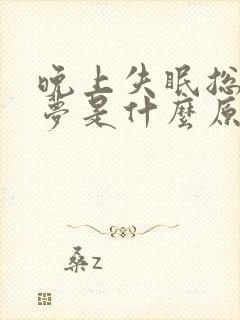 晚上失眠总
夢是什麼原
桑z